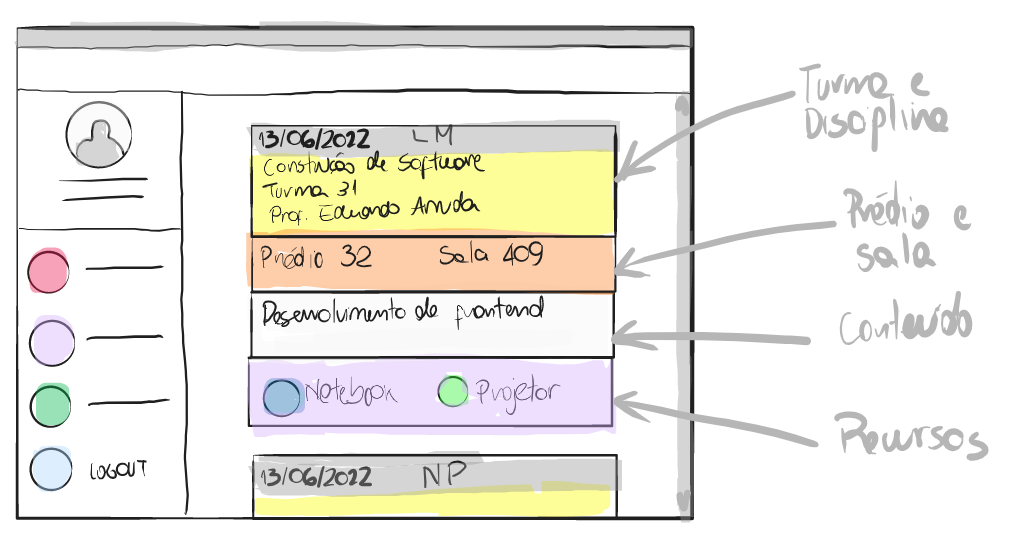 13/06/2022 LM
Construção de Software
Turma 31
Prof. Eduardo Arruda
Prédio 32 Sala 409
Desenvolvimento de frontend
Notebook Projetor
13/06/2022 NP
LOGOUT
Turma e
Disciplina
Prédio e
sala
Conteúdo
Recursos